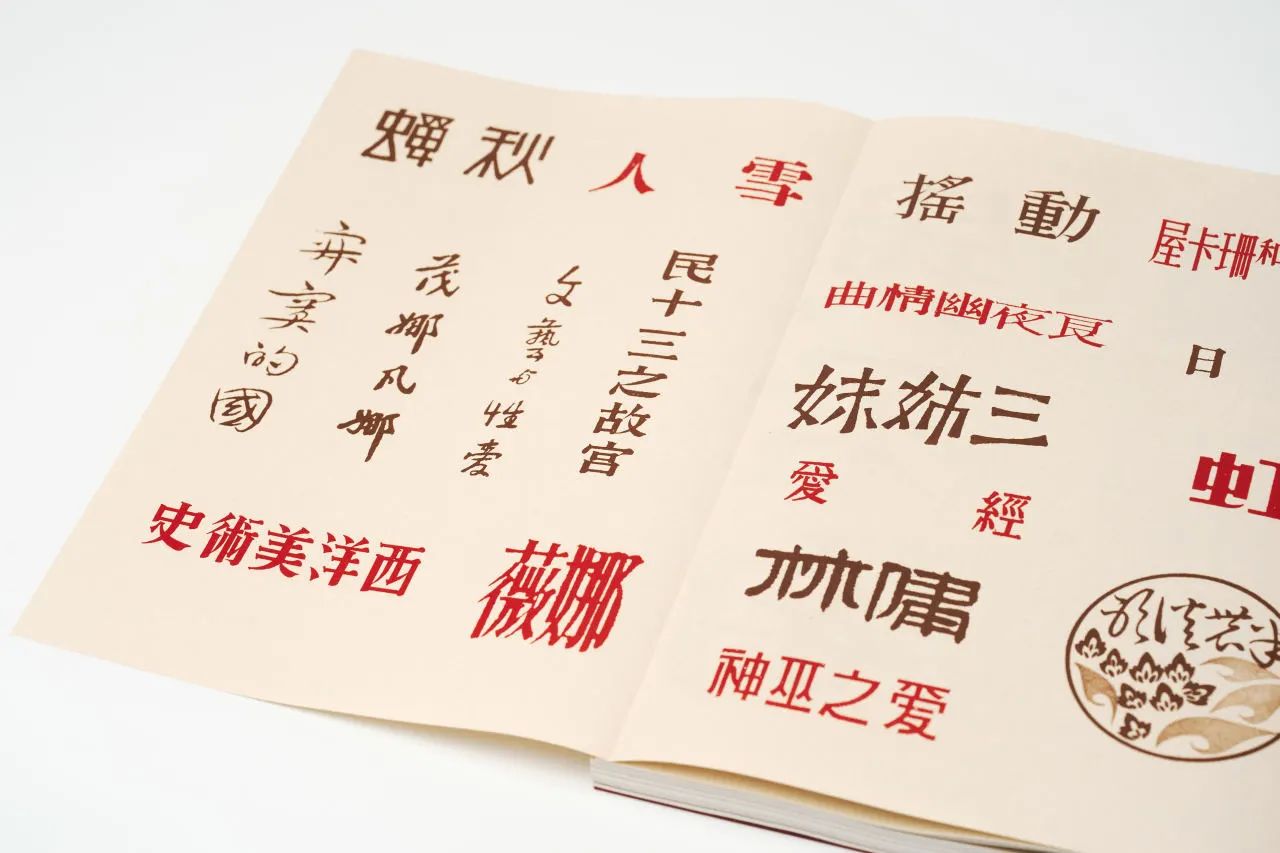 秋蟬
雪人
民十三之故宮
文藝与性愛
茂娜凡娜
寂寞的國
西洋美術史
薇娜
動搖
屋卡珊和
夏夜幽情曲
日
三姊妹
虹
愛經
林
神巫之愛